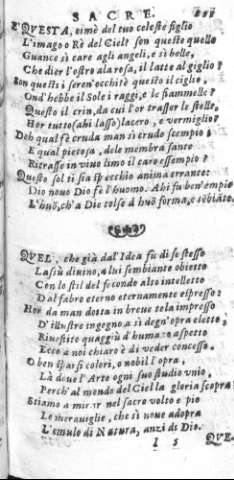 SACRE.
QVESTA, oimè del tuo celeste figlio
L'imago o Rè del Ciel? son queste quelle
Guance sì care agli angeli, e sì belle,
Che dier l'ostro ala rosa, il latte al giglio?
Son questi i seren'occhi? è questo il ciglio,
Ond'hebbe il Sole i raggi, e le fiammelle?
Questo il crin, da cui l'or trasser le stelle,
Hor tutto (ahi lasso) lacero, e vermiglio?
Deh qual fè cruda man sì crudo scempio?
E qual pietosa, dele membra sante
Ritrasse in viuo limo il caro essempio?
Questo sol ti sia specchio anima errante:
Dio nouo Dio fè l'huomo. Ahi fu ben'empio
L'huō, ch'a Dio tolse d'huō forma, e sēbiāte.
QVEL, che già dal'Idea fu di se stesso
Lasù diuino, a lui sembiante obietto
Con lo stil del secondo alto intelletto
Dal fabro eterno eternamente espresso:
Hor da man dotta in breue tela impresso
D'illustre ingegno a sì degn'opra eletto,
Riuestito quaggiù d'humano aspetto
Ecco a noi chiaro è di veder concesso.
O ben sparsi colori, o nobil'opra,
Là doue l'Arte ogni suo studio vnio,
Perch'al mondo del Ciel la gloria scopra
Stiamo a mirar nel sacro volto e pio
Le merauiglie, che sì noue adopra
L'emulo di Natura, anzi di Dio.
I 5
QVE-